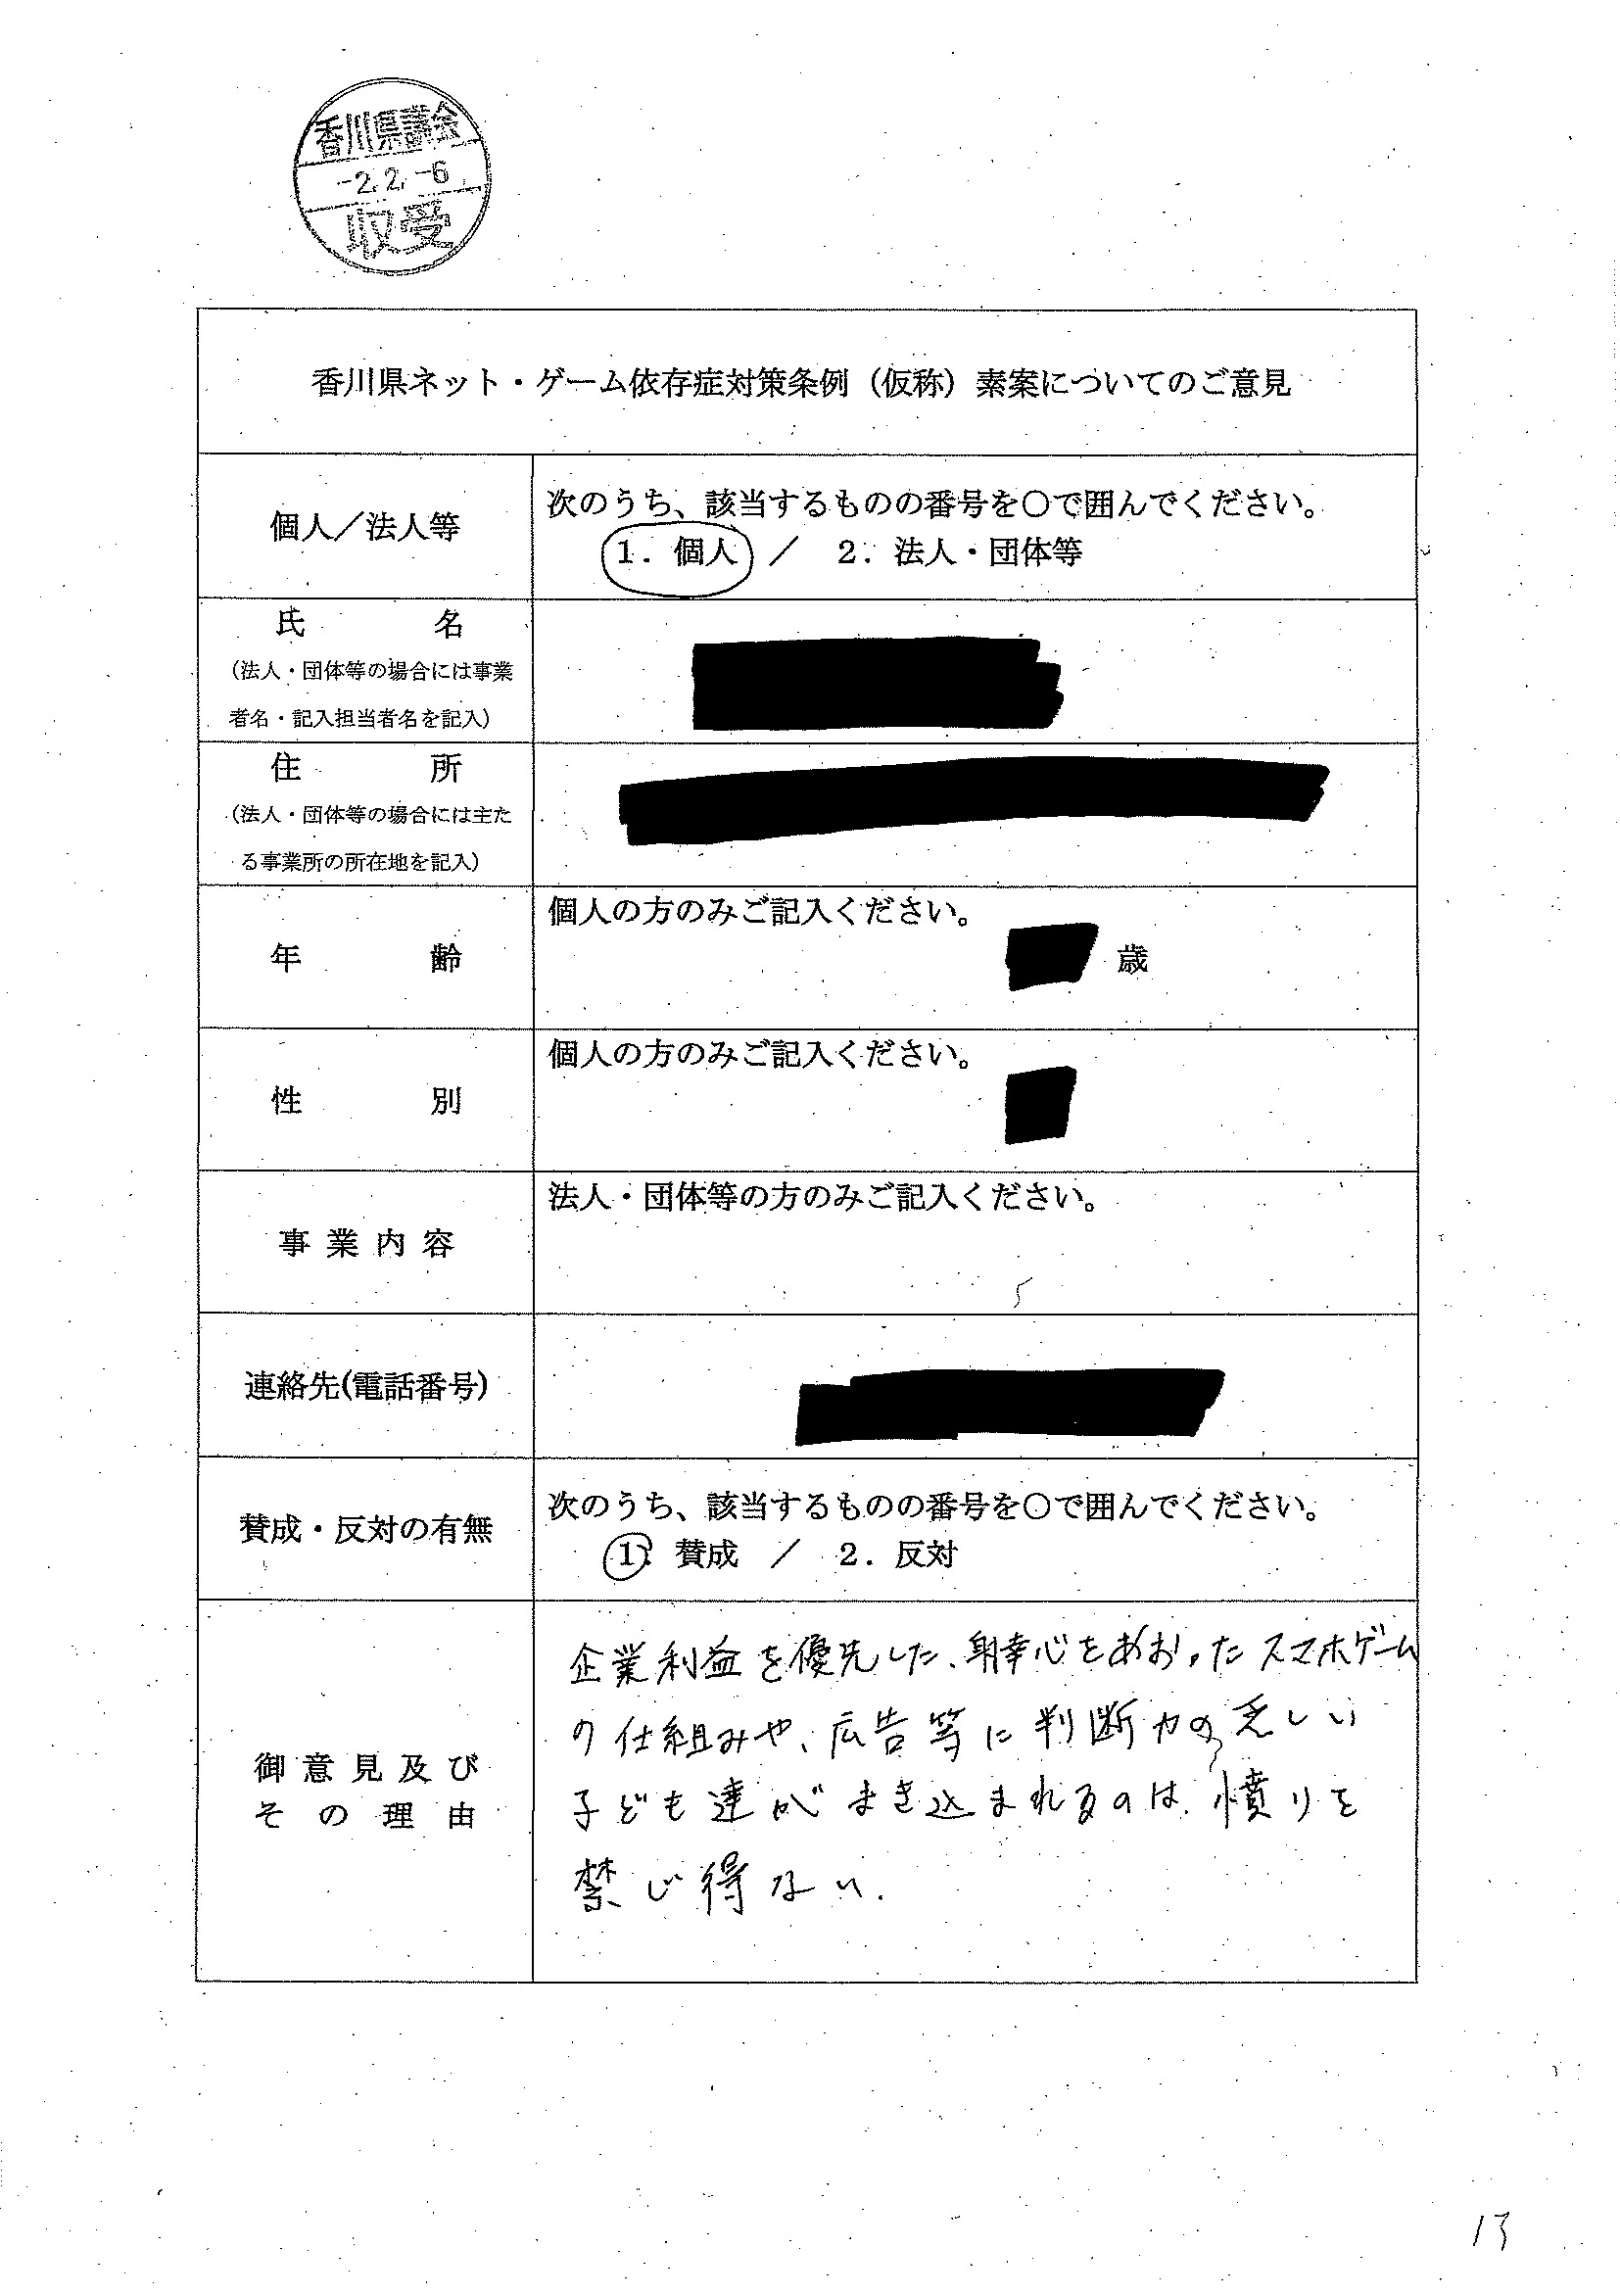 香川県議会
-2.2.-6
収受
香川県ネット・ゲーム依存症対策条例（仮称）素案についてのご意見
個人／法人等
次のうち、該当するものの番号を○で囲んでください。
1．個人 ／ 2．法人・団体等
氏 名
（法人・団体等の場合には事業
者名・記入担当者名を記入）
住 所
（法人・団体等の場合には主た
る事業所の所在地を記入）
年 齢
個人の方のみご記入ください。
歳
性 別
個人の方のみご記入ください。
事業内容
法人・団体等の方のみご記入ください。
連絡先(電話番号)
賛成・反対の有無
次のうち、該当するものの番号を○で囲んでください。
1．賛成 ／ 2．反対
御意見及び
その理由
企業利益を優先した、射幸心をあおったスマホゲーム
の仕組みや、広告等に判断力の乏しい
子ども達がまき込まれるのは、憤りを
禁じ得ない.
13